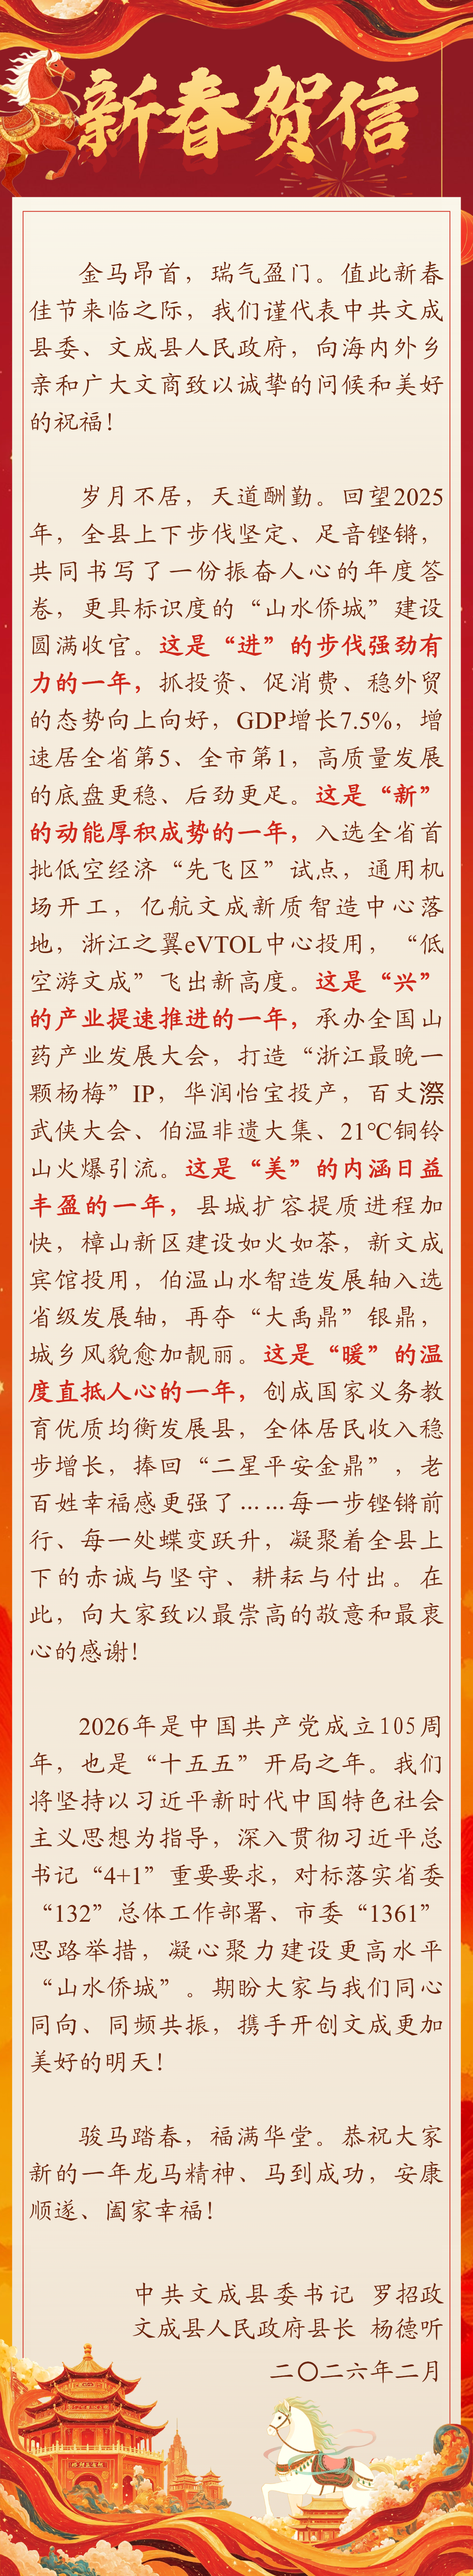 新春贺信
金马昂首，瑞气盈门。值此新春
佳节来临之际，我们谨代表中共文成
县委、文成县人民政府，向海内外乡
亲和广大文商致以诚挚的问候和美好
的祝福！
岁月不居，天道酬勤。回望2025
年，全县上下步伐坚定、足音铿锵，
共同书写了一份振奋人心的年度答
卷，更具标识度的“山水侨城”建设
圆满收官。这是“进”的步伐强劲有
力的一年，抓投资、促消费、稳外贸
的态势向上向好，GDP增长7.5%，增
速居全省第5、全市第1，高质量发展
的底盘更稳、后劲更足。这是“新”
的动能厚积成势的一年，入选全省首
批低空经济“先飞区”试点，通用机
场开工，亿航文成新质智造中心落
地，浙江之翼eVTOL中心投用，“低
空游文成”飞出新高度。这是“兴”
的产业提速推进的一年，承办全国山
药产业发展大会，打造“浙江最晚一
颗杨梅”IP，华润怡宝投产，百丈漈
武侠大会、伯温非遗大集、21℃铜铃
山火爆引流。这是“美”的内涵日益
丰盈的一年，县城扩容提质进程加
快，樟山新区建设如火如荼，新文成
宾馆投用，伯温山水智造发展轴入选
省级发展轴，再夺“大禹鼎”银鼎，
城乡风貌愈加靓丽。这是“暖”的温
度直抵人心的一年，创成国家义务教
育优质均衡发展县，全体居民收入稳
步增长，捧回“二星平安金鼎”，老
百姓幸福感更强了……每一步铿锵前
行、每一处蝶变跃升，凝聚着全县上
下的赤诚与坚守、耕耘与付出。在
此，向大家致以最崇高的敬意和最衷
心的感谢！
2026年是中国共产党成立105周
年，也是“十五五”开局之年。我们
将坚持以习近平新时代中国特色社会
主义思想为指导，深入贯彻习近平总
书记“4+1”重要要求，对标落实省委
“132”总体工作部署、市委“1361”
思路举措，凝心聚力建设更高水平
“山水侨城”。期盼大家与我们同心
同向、同频共振，携手开创文成更加
美好的明天！
骏马踏春，福满华堂。恭祝大家
新的一年龙马精神、马到成功，安康
顺遂、阖家幸福！
中共文成县委书记 罗招政
文成县人民政府县长 杨德听
二〇二六年二月